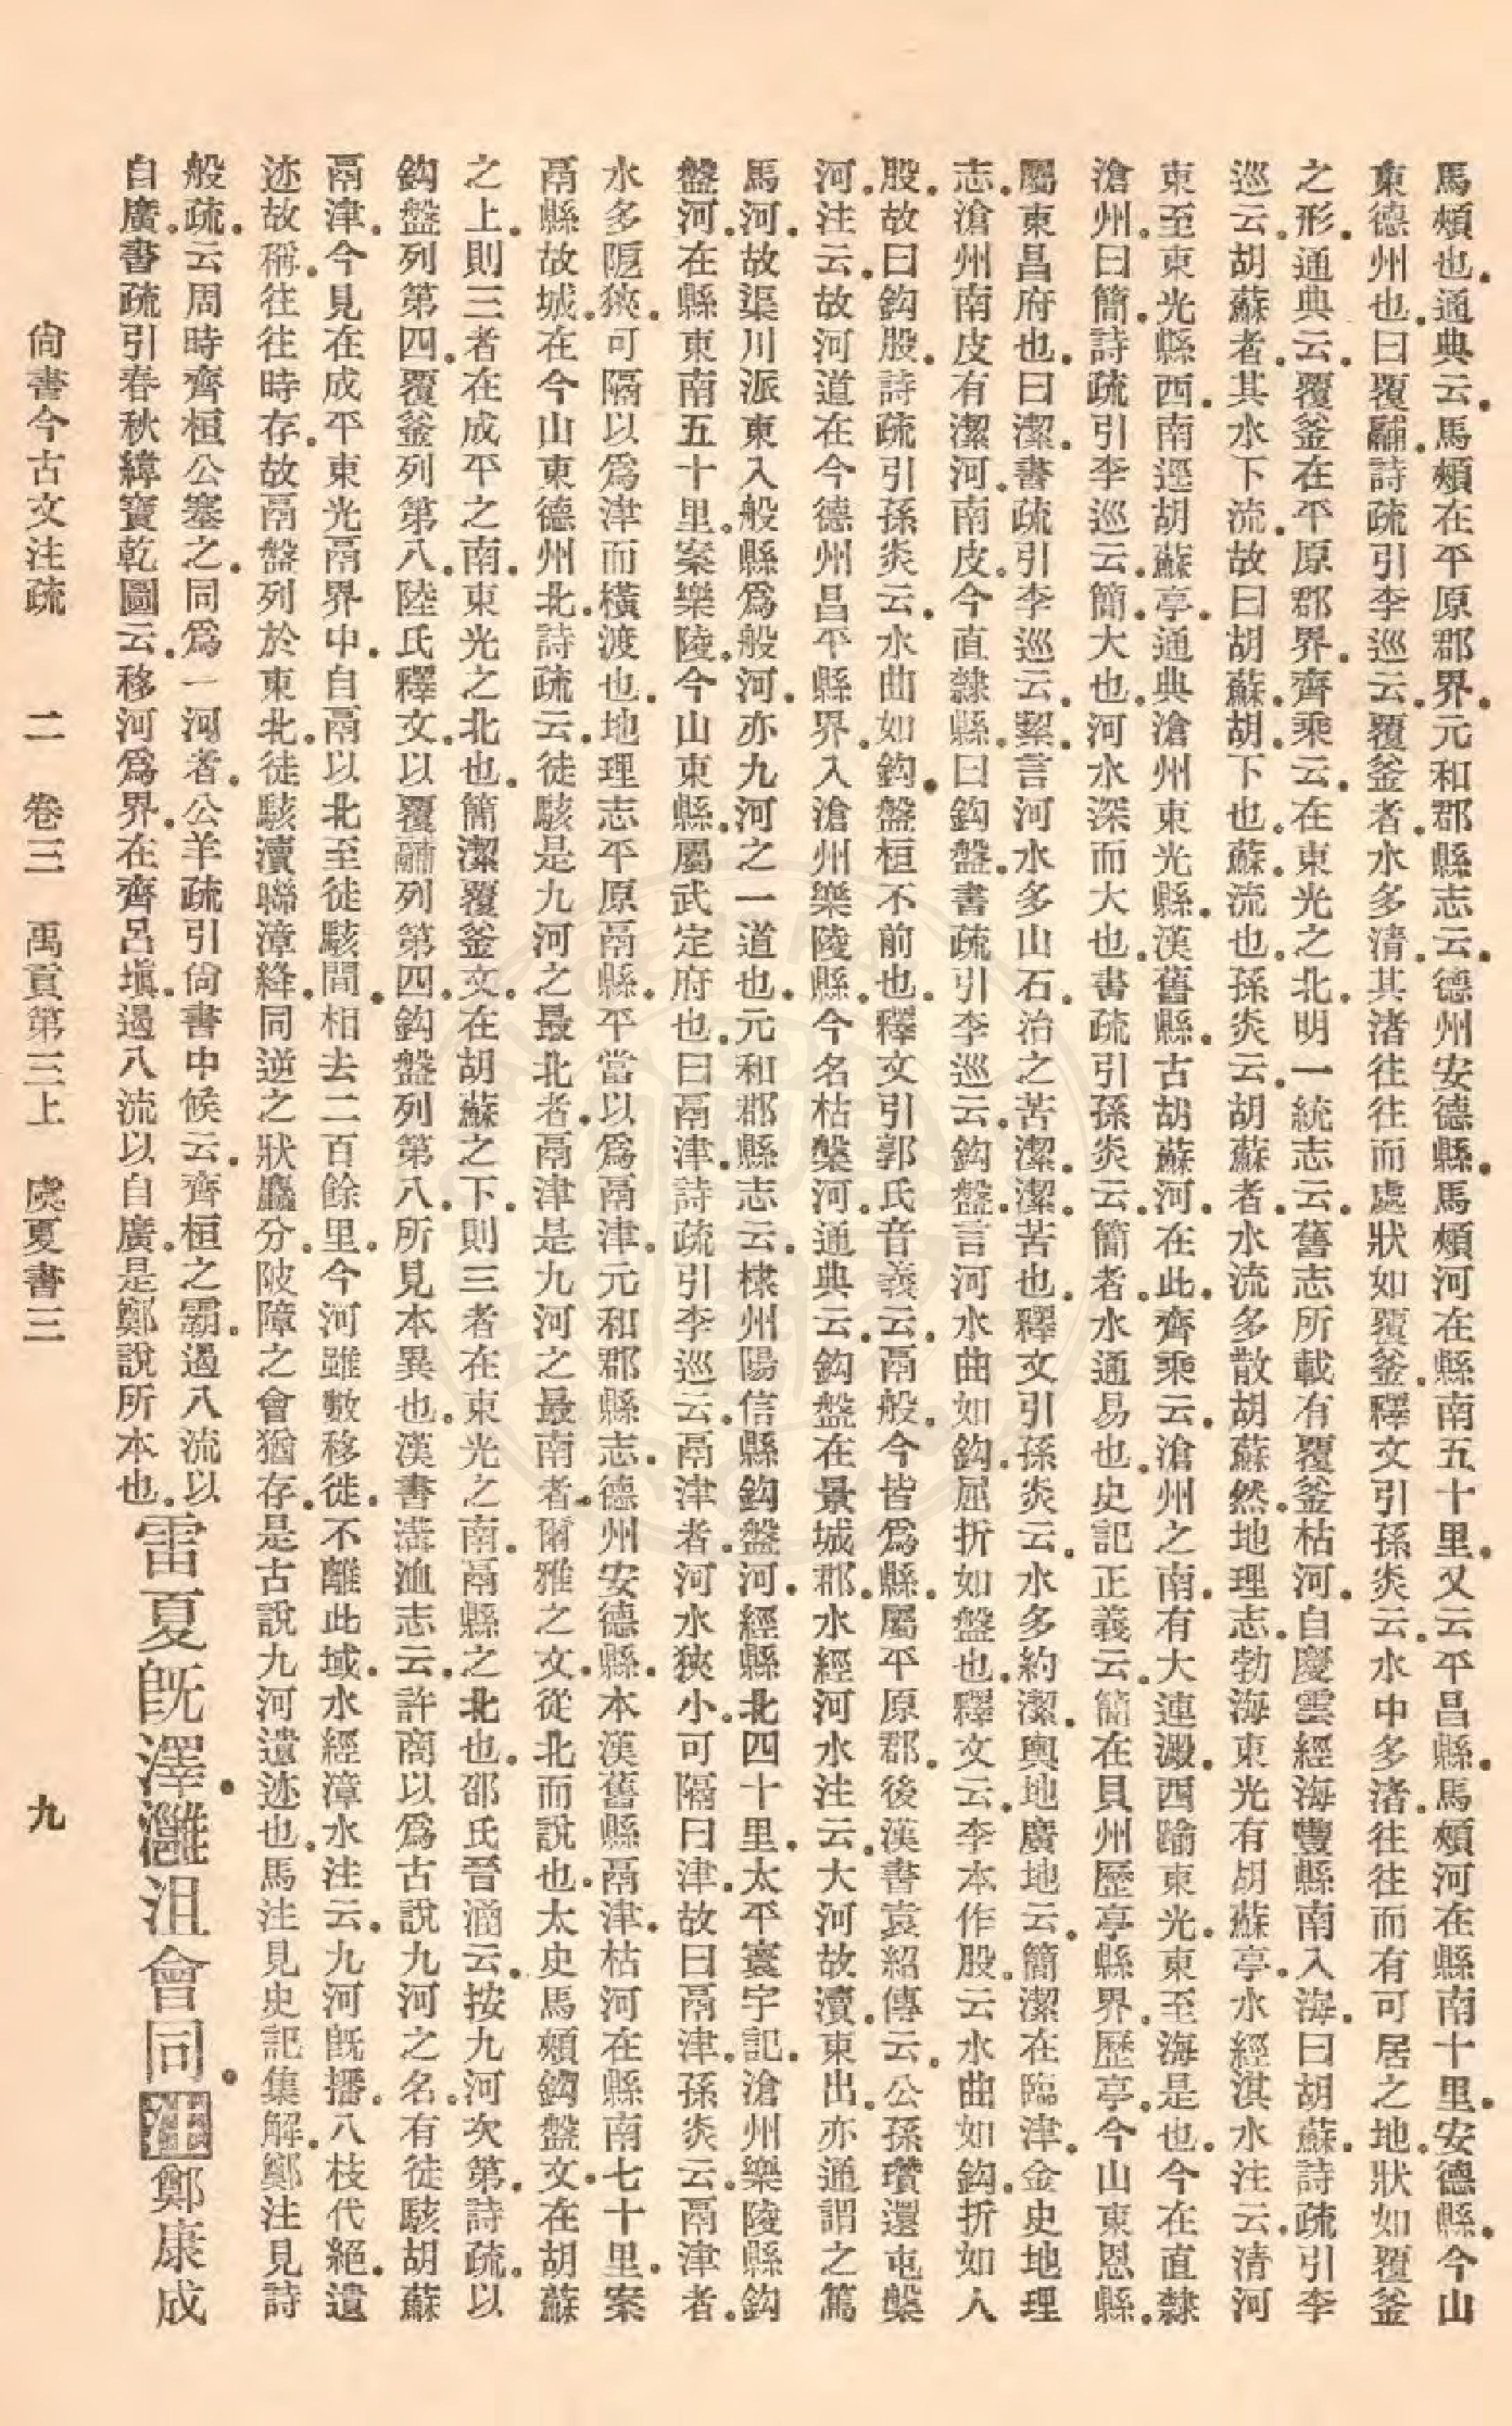 馬頰也。通典云。馬頰在平原郡界。元和郡縣志云。德州安德縣。馬頰河在縣南五十里。又云平昌縣。馬頰河在縣南十里。安德縣。今山
東德州也。曰覆鬴。詩疏引李巡云。覆釜者。水多渚。其渚往往而處。狀如覆釜。釋文引孫炎云。水中多渚。往往而有可居之地。狀如覆釜
之形。通典云。覆釜在平原郡界。齊乘云。在東光之北。明一統志云。舊志所載有覆釜枯河。自慶雲經海豐縣南入海。曰胡蘇。詩疏引李
巡云。胡蘇者。其水下流。故曰胡蘇。胡。下也。蘇。流也。孫炎云。胡蘇者。水流多散胡蘇然。地理志。勃海東光有胡蘇亭。水經淇水注云。清河
東至東光縣西。南逕胡蘇亭。通典滄州東光縣。漢舊縣。古胡蘇河。在此。齊乘云。滄州之南。有大連澱。西踰東光。東至海是也。今在直隸
滄州。曰簡。詩疏引李巡云。簡。大也。河水深而大也。書疏引孫炎云。簡者。水通易也。史記正義云。簡在貝州歷亭縣界。歷亭。今山東恩縣。
屬東昌府也。曰潔。書疏引李巡云。絜。言河水多山石。治之苦潔。潔。苦也。釋文引孫炎云。水多約潔。輿地廣地云。簡潔在臨津。金史地理
志。滄州南皮有潔河。南皮。今直隸縣。曰鈎盤。書疏引李巡云。鈎盤。言河水曲如鈎。屈折如盤也。釋文云。李本作股。云水曲如鈎。折如人
股。故曰鈎股。詩疏引孫炎云。水曲如鈎。盤桓不前也。釋文引郭氏音義云。鬲般。今皆爲縣。屬平原郡。後漢書袁紹傳云。公孫瓚還屯槃
河。注云。故河道在今德州昌平縣界。入滄州樂陵縣。今名枯槃河。通典云。鈎盤在景城郡。水經河水注云。大河故瀆。東出。亦通謂之篤
馬河。故渠川派東入般縣爲般河。亦九河之一道也。元和郡縣志云。棣州陽信縣鈎盤河。經縣北四十里。太平寰宇記。滄州樂陵縣鈎
盤河。在縣東南五十里。案樂陵。今山東縣。屬武定府也。曰鬲津。詩疏引李巡云。鬲津者。河水狹小。可隔曰津。故曰鬲津。孫炎云。鬲津者。
水多阨狹。可隔以爲津而橫渡也。地理志平原鬲縣。平當以爲鬲津。元和郡縣志。德州安德縣。本漢舊縣鬲津。枯河在縣南七十里。案
鬲縣故城。在今山東德州北。詩疏云。徒駭是九河之最北者。鬲津是九河之最南者。爾雅之文。從北而說也。太史馬頰鈎盤文。在胡蘇
之上。則三者在成平之南。東光之北也。簡潔覆釜文。在胡蘇之下。則三者在東光之南。鬲縣之北也。邵氏晉涵云。按九河次第。詩疏以
鈎盤列第四。覆釜列第八。陸氏釋文。以覆鬴列第四。鈎盤列第八。所見本異也。漢書溝洫志云。許商以爲古說九河之名。有徒駭胡蘇
鬲津。今見在成平東光鬲界中。自鬲以北至徒駭間。相去二百餘里。今河雖數移徙。不離此域。水經漳水注云。九河旣播。八枝代絕。遺
迹故稱。往往時存。故鬲盤列於東北。徒駭瀆聯漳絳。同逆之狀麤分。陂障之會猶存。是古說九河遺迹也。馬注見史記集解。鄭注見詩
般疏。云周時齊桓公塞之。同爲一河者。公羊疏引尙書中候云。齊桓之霸。遏八流以
自廣。書疏引春秋緯寶乾圖云。移河爲界。在齊呂塡。遏八流以自廣。是鄭說所本也。
雷夏旣澤。灉沮會同。注鄭康成
尙書今古文注疏 二 卷三 禹貢第三上 虞夏書三 九